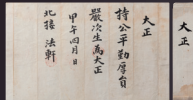 大正
持公平勤厚員
嚴次生為大正
甲午四月日
北接 法軒
大正